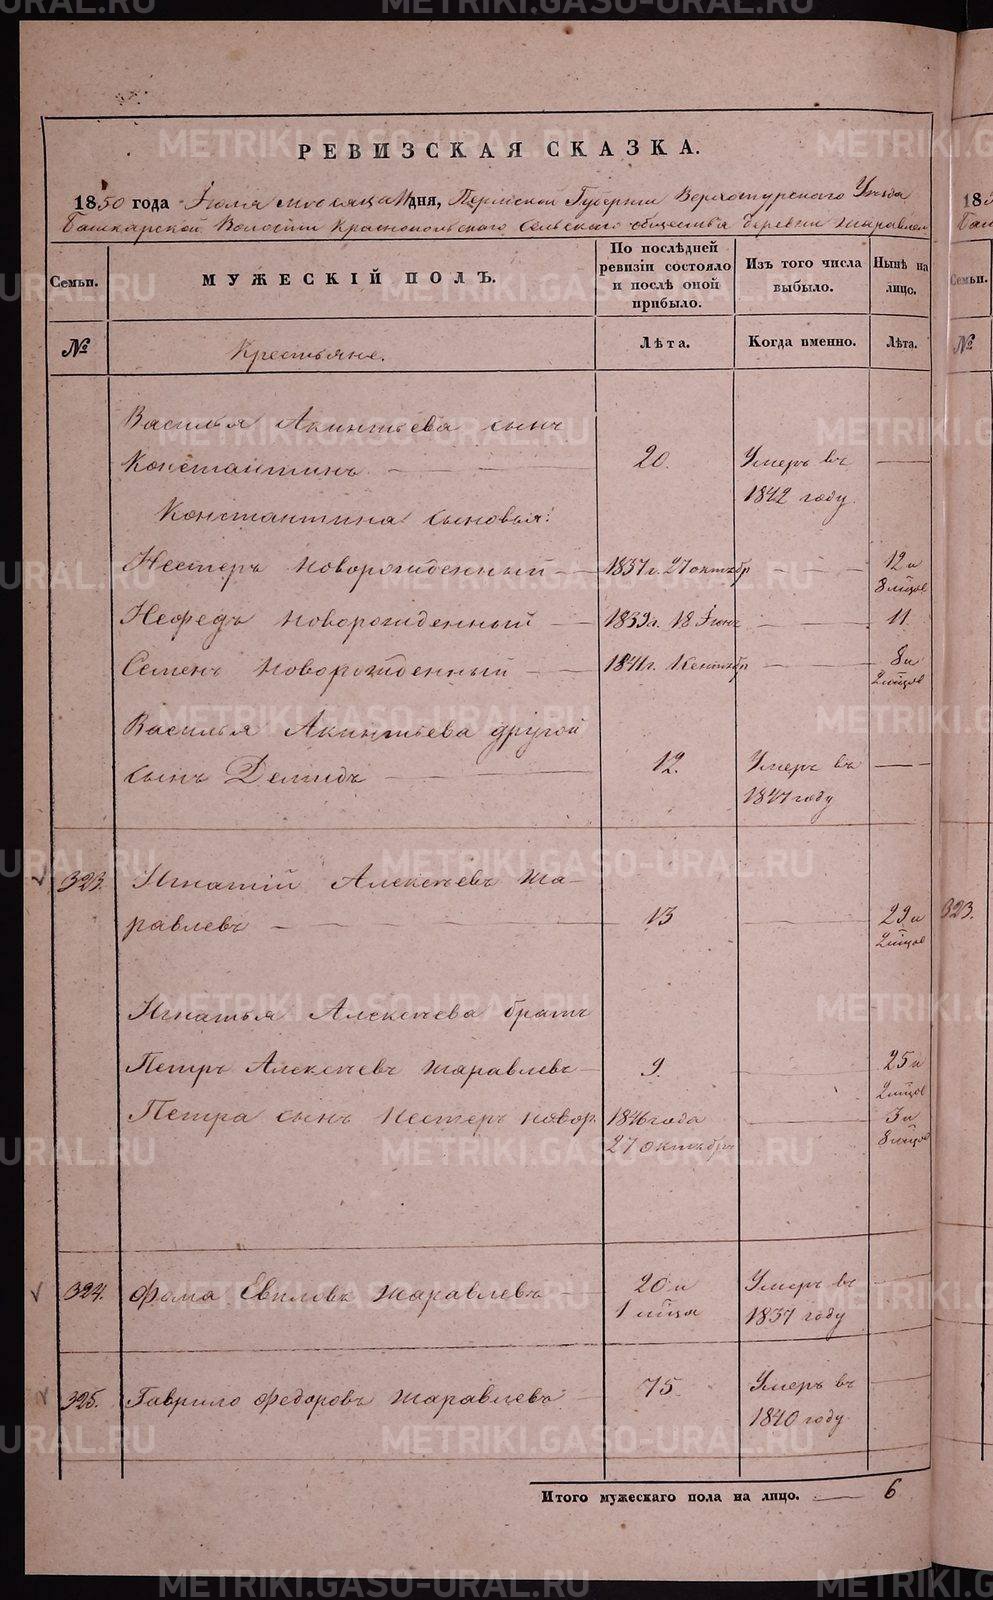 РЕВИЗСКАЯ СКАЗКА.
1850 года Іюля мѣсяца дня, Пермской Губерніи Верхотурскаго Уѣзда
Башкарской Волости Краснопольского Сельского общества деревни Жаравлев
Семьи.
МУЖЕСКІЙ ПОЛЪ.
По послѣдней ревизіи состояло и послѣ оной прибыло.
Изъ того числа выбыло.
Нынѣ на лицо.
№
Крестьяне.
Лѣта.
Когда именно.
Лѣта.
Василья Акинтьева сынъ
Константинъ — 20. Умеръ въ —
1842 году
Константина сыновья:
Нестеръ новорожденный — 1837 г. 27 октябр — 12 и
8 мѣцов
Нефедъ новорожденный — 1839 г. 18 Іюня — 11
Семенъ новорожденный — 1841 г. 1 сентябр — 8 и
2 мѣцов
Василья Акинтьева другой
сынъ Демидъ — 12. Умеръ въ —
1847 году
323. Игнатій Алексѣевъ Жа-
равлевъ — 13 — 29 и
2 мѣцов
323.
Игнатья Алексѣева братъ
Петръ Алексѣевъ Жаравлевъ — 9. 25 и
2 мѣцов
Петра сынъ Нестеръ новор. 1846 года — 3 и
27 октября 8 мѣцов
324. Фома Евиловъ Жаравлевъ — 20 и Умеръ въ —
1 мѣця 1837 году
325. Гаврило Федоровъ Жаравлевъ — 75. Умеръ въ —
1840 году
Итого мужескаго пола на лицо. — 6
METRIKI.GASO-URAL.RU